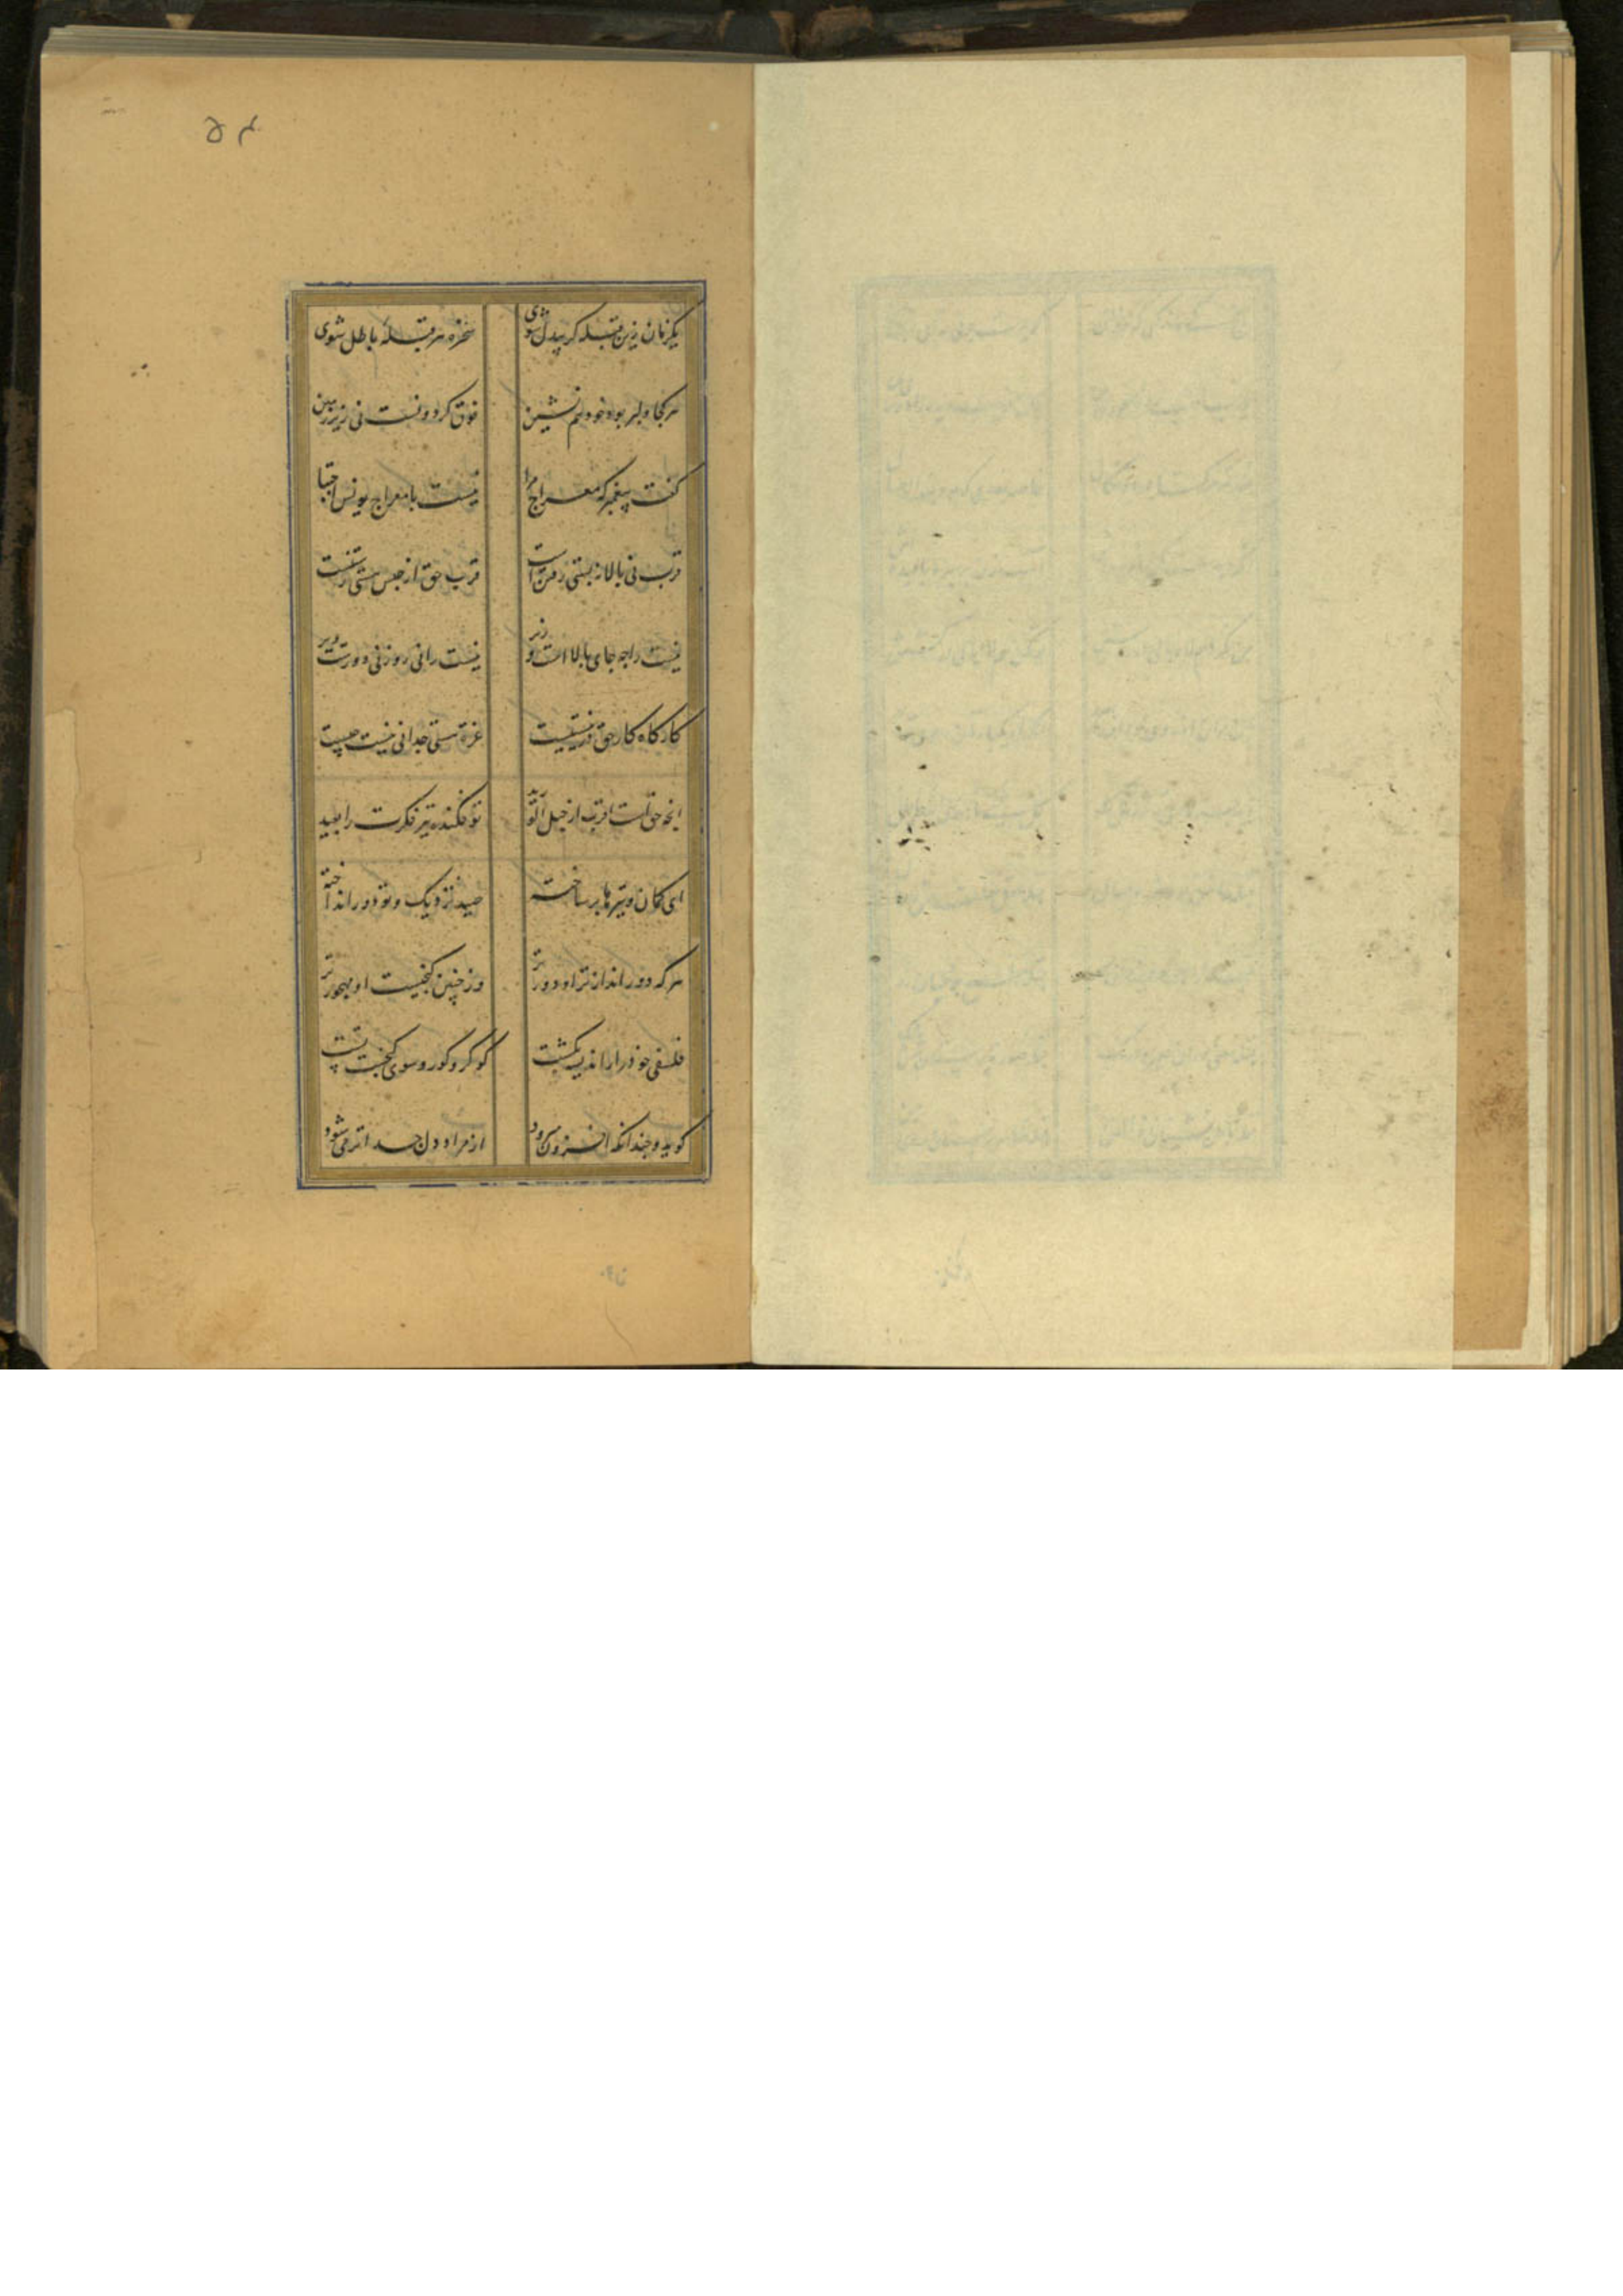 ۵۴
یکزمان زین قبله گر بیدل شوی سخره هر قبلهٔ باطل شوی
هر کجا دلبر بود خود همنشین فوق گردونست نی زیر زمین
گفت پیغمبر که معراج مرا نیست با معراج یونس اجتبا
قرب نی بالا نه پستی رفتن است قرب حق از حبس هستی رستنست
نیست را چه جای بالا است و زیر نیست را نی زود نی دورست و دیر
کارگاه کار حق در نیستیست غره هستی چه دانی نیست چیست
آنچه حق است اقرب از حبل الورید تو فکنده تیر فکرت را بعید
ای کمان و تیرها بر ساخته صید نزدیک و تو دور انداخته
هر که دور انداز تر او دور تر وز چنین گنجیست او مهجور تر
فلسفی خود را از اندیشه بکشت گو کو را سوی گنجست پشت
گو بدو چندانکه افزون می‌رود از مراد دل جدا تر می شود